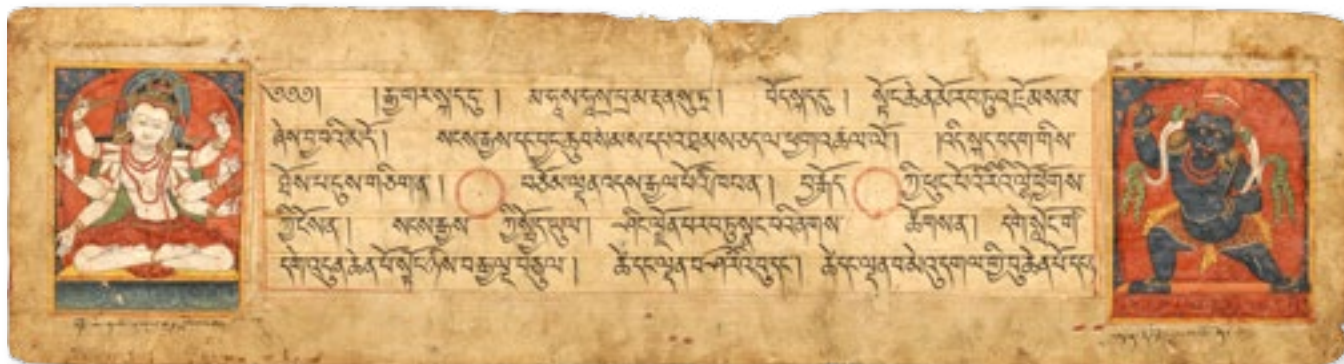 ༄༅༅། །རྒྱ་གར་སྐད་དུ ། མ་ཧཱ་སཱ་ཧསྲ་པྲ་མ་རྡ་ན་སུ་ཏྲ ། བོད་སྐད་དུ ། སྟོང་ཆེན་མོ་རབ་ཏུ་འཇོམས་མ་
ཞེས་བྱ་བའི་མདོ ། སངས་རྒྱས་དང་བྱང་ཆུབ་སེམས་དཔའ་ཐམས་ཅད་ལ་ཕྱག་འཚལ་ལོ ། །འདི་སྐད་བདག་གིས་
ཐོས་པ་དུས་གཅིག་ན ། བཅོམ་ལྡན་འདས་རྒྱལ་པོའི་ཁབ་ན ། བྱ་རྒོད་ ཀྱི་ཕུང་པོའི་རིའི་ལྷོ་ཕྱོགས་
ཀྱི་ངོས་ན ། སངས་རྒྱས་ ཀྱི་སྤྱོད་ཡུལ ། ཤིང་ལྗོན་པ་རབ་ཏུ་སྲུང་བའི་ནགས་ ཚོགས་ན ། དགེ་སློང་གི་
དགེ་འདུན་ཆེན་པོ་སྟོང་ཉིས་བརྒྱ་ལྔ་བཅུ་ལ ། ཚེ་དང་ལྡན་བ་ཤ་རིའི་བུ་དང ། ཚེ་དང་ལྡན་བ་མེའུ་དགལ་གྱི་བུ་ཆེན་པོ་དང